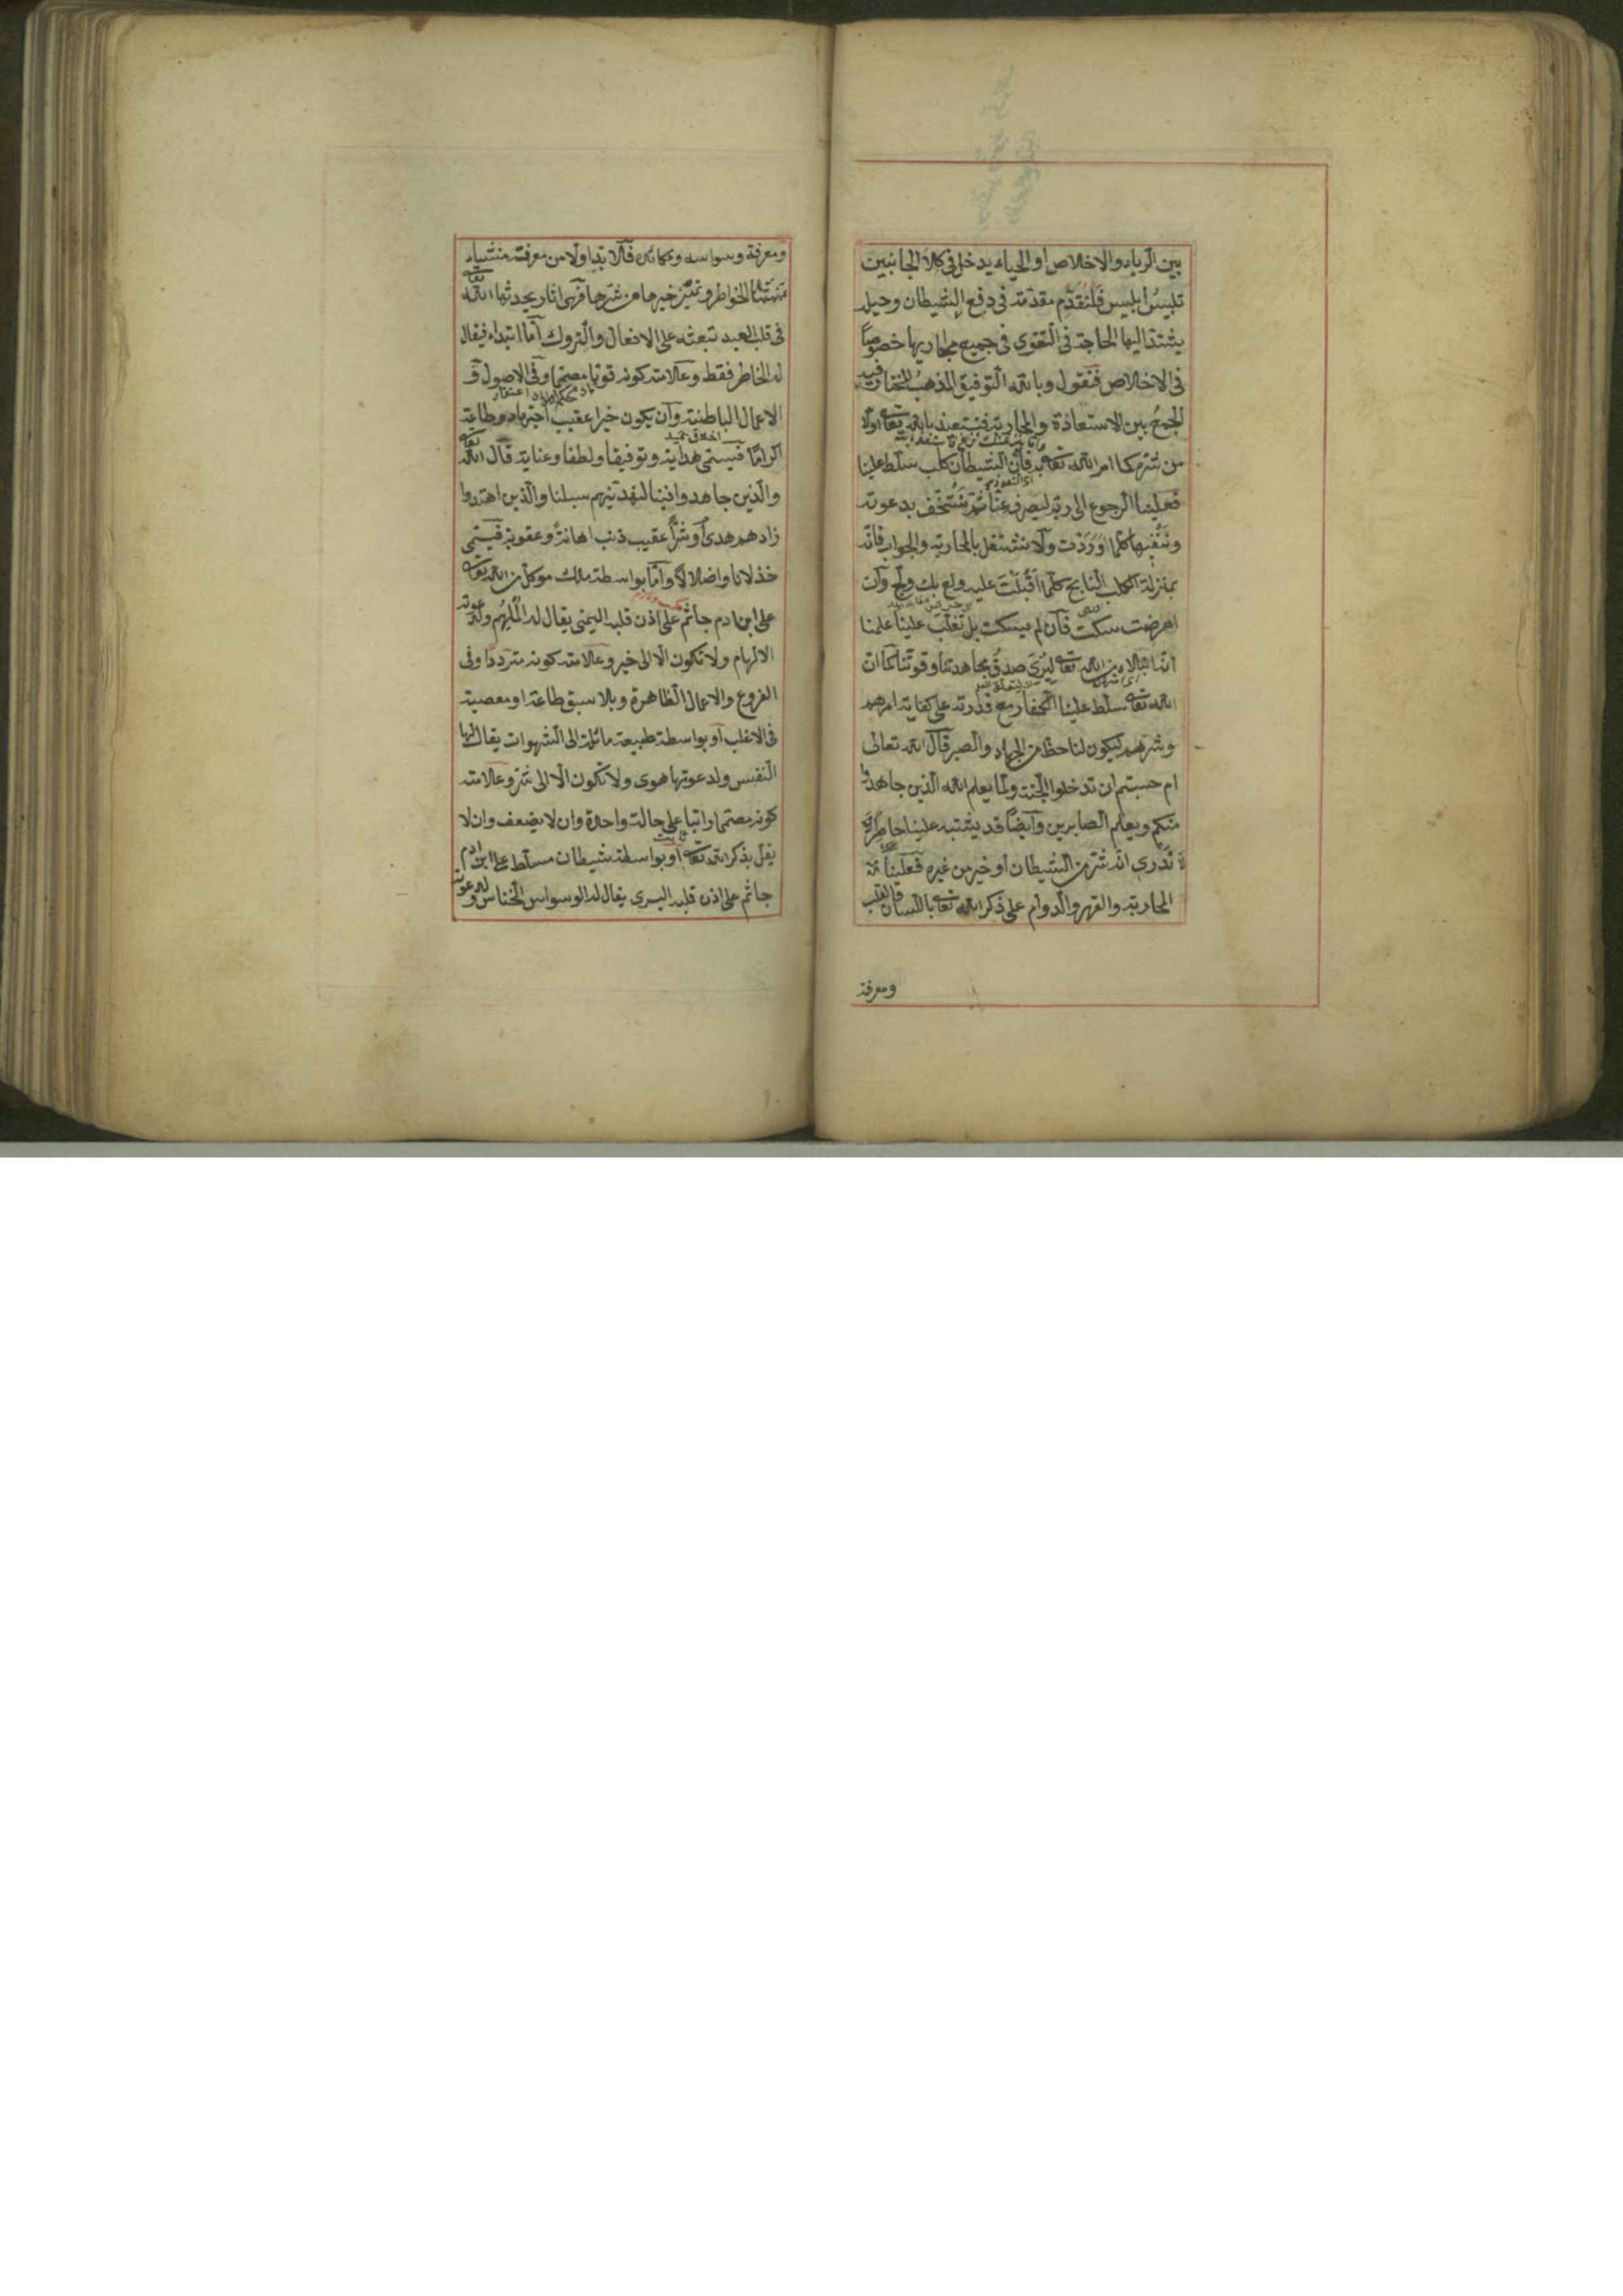 بين الرياء والاخلاص او الحياء يدخل فى كلا الجانبين
تلبيس ابليس فلنقدم مقدمة فى دفع الشيطان وحيله
يشتد اليها الحاجة فى التقوى فى جميع مجاريها خصوصا
فى الاخلاص فنقول وبالله التوفيق المذهب المختار فيه
الجمع بين الاستعاذة والمحاربة فنستعيذ بالله تعالى اولا
من شره كما امر الله تعالى به فان الشيطان كلب سلط علينا
فعلينا الرجوع الى ربه ليصرفه عنا ثم نستخف بدعوته
وننفيها كلما اوردت ولا نشتغل بالمحاربة والجواب فانه
بمنزلة الكلب النابح كلما اقبلت عليه ولع بك ولج وان
اعرضت سكت فان لم يسكت بل تغلب علينا علمنا
انه ابتلاء من الله تعالى ليرى صدق مجاهدتنا وقوتنا كما ان
الله تعالى سلط علينا الكفار مع قدرته على كفاية امرهم
وشرهم ليكون لنا حظ من الجهاد والصبر قال الله تعالى
ام حسبتم ان تدخلوا الجنة ولما يعلم الله الذين جاهدوا
منكم ويعلم الصابرين وايضا قد يشتبه علينا خاطر
لا ندرى انه شر من الشيطان او خير من غيره فعلينا
المحاربة والقهر والدوام على ذكر الله تعالى باللسان والقلب
ومعرفة
ومعرفة وسواسه ومكائده فلا بد اولا من معرفة منشاء
الخواطر وتمييز خيرها من شرها فهى اثار يحدثها الله تعالى
فى قلب العبد تبعثه على الافعال والتروك اما ابتداء فيقال
له الخاطر فقط وعلامته كونه قويا مصمما وفى الاصول و
الاعمال الباطنة وان يكون خيرا عقيب اجتهاد وطاعة
اكراما فيسمى هداية وتوفيقا ولطفا وعناية قال الله تعالى
والذين جاهدوا فينا لنهدينهم سبلنا والذين اهتدوا
زادهم هدى او شرا عقيب ذنب اهانة وعقوبة فيسمى
خذلانا واضلالا واما بواسطة ملك موكل من الله تعالى
على ابن ادم جاثم على اذن قلبه اليمنى يقال له الملهم ولدعوته
الالهام ولا تكون الا الى خير وعلامته كونه مترددا وفى
الفروع والاعمال الظاهرة وبلا سبق طاعة او معصية
فى الاغلب او بواسطة طبيعة مائلة الى الشهوات يقال لها
النفس ولدعوتها هوى ولا تكون الا الى شر وعلامته
كونه مصمما راتبا على حالة واحدة وان لا يضعف وان لا
يقل بذكر الله تعالى او بواسطة شيطان مسلط على ابن ادم
جاثم على اذن قلبه اليسرى يقال له الوسواس الخناس ولدعوته